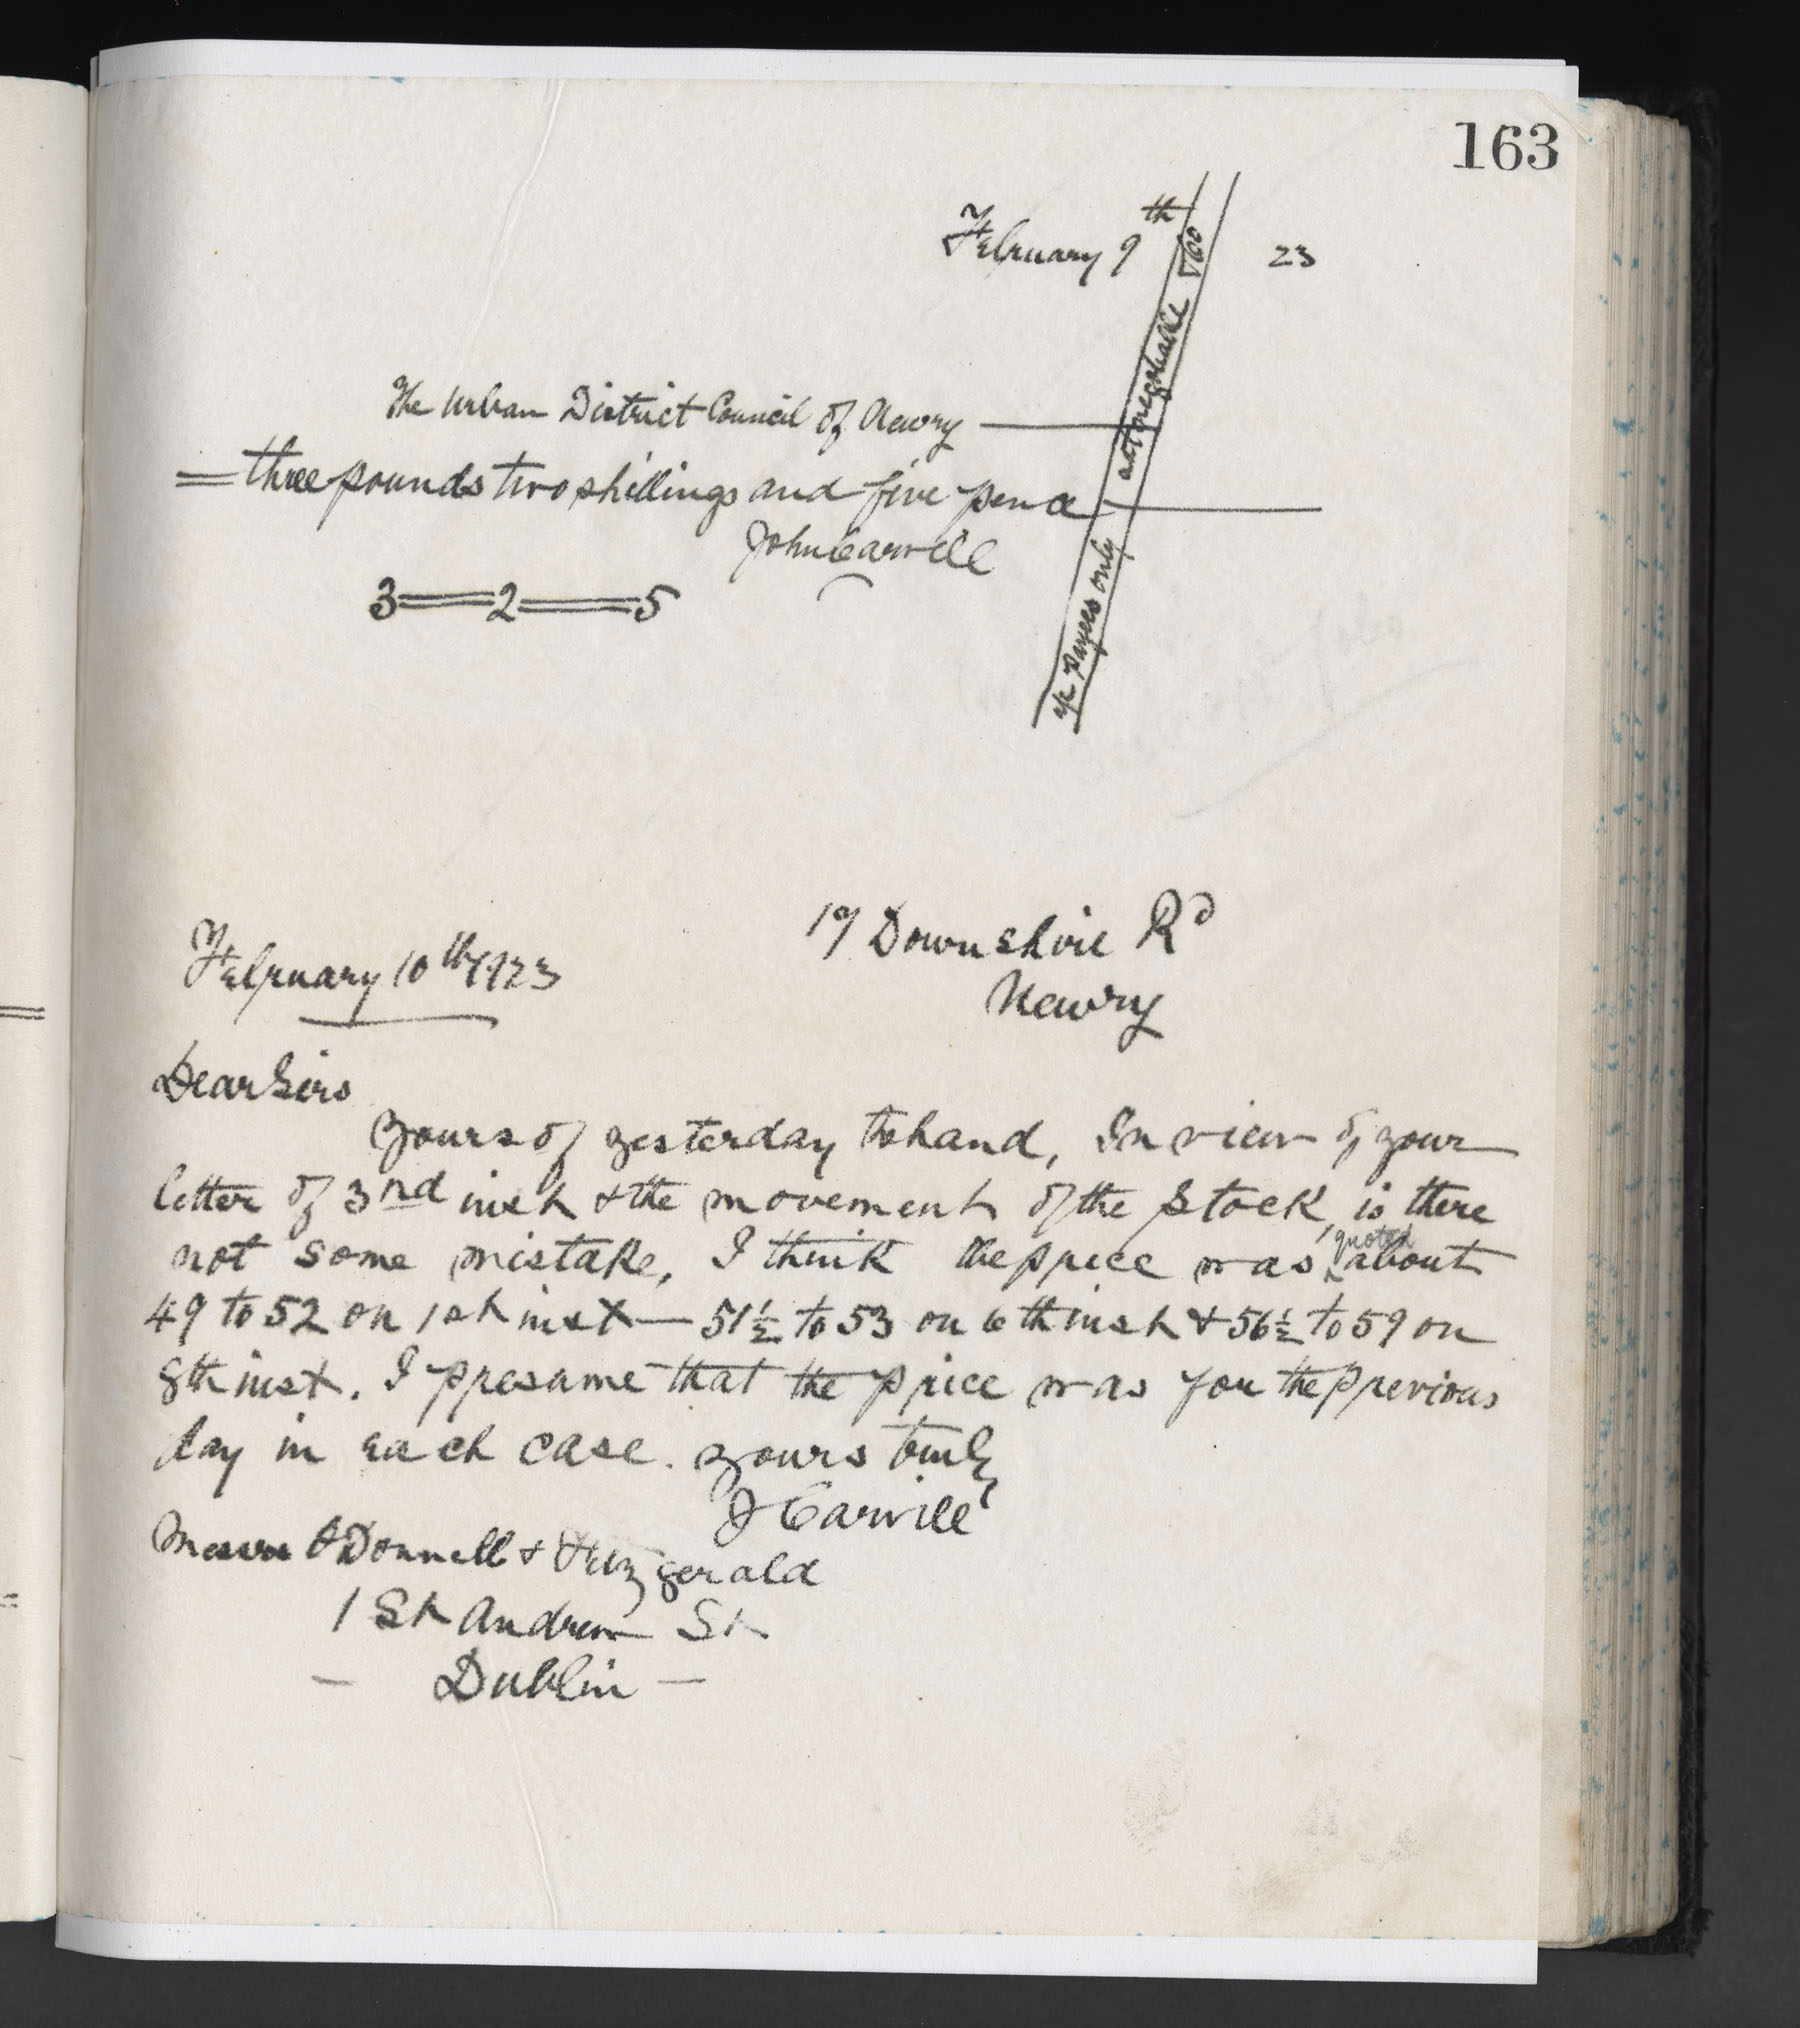 163
February 9th 23
The Urban District Council of Newry
= three pounds two shillings and five pence
John Carvill
3 == 2 == 5
a/c Payees only not negotiable &Co
17 Downshire Rd
Newry
February 10th 1923
Dear Sirs
Yours of yesterday to hand, In view of your
letter of 3nd inst & the movement of the stock, is there
not some mistake, I think the price was quoted about
49 to 52 on 1st inst — 51½ to 53 on 6th inst & 56½ to 59 on
8th inst. I presume that the price was for the previous
day in each case. Yours truly
J Carvill
Messrs O'Donnell & Fitzgerald
1 St Andrew St
— Dublin —